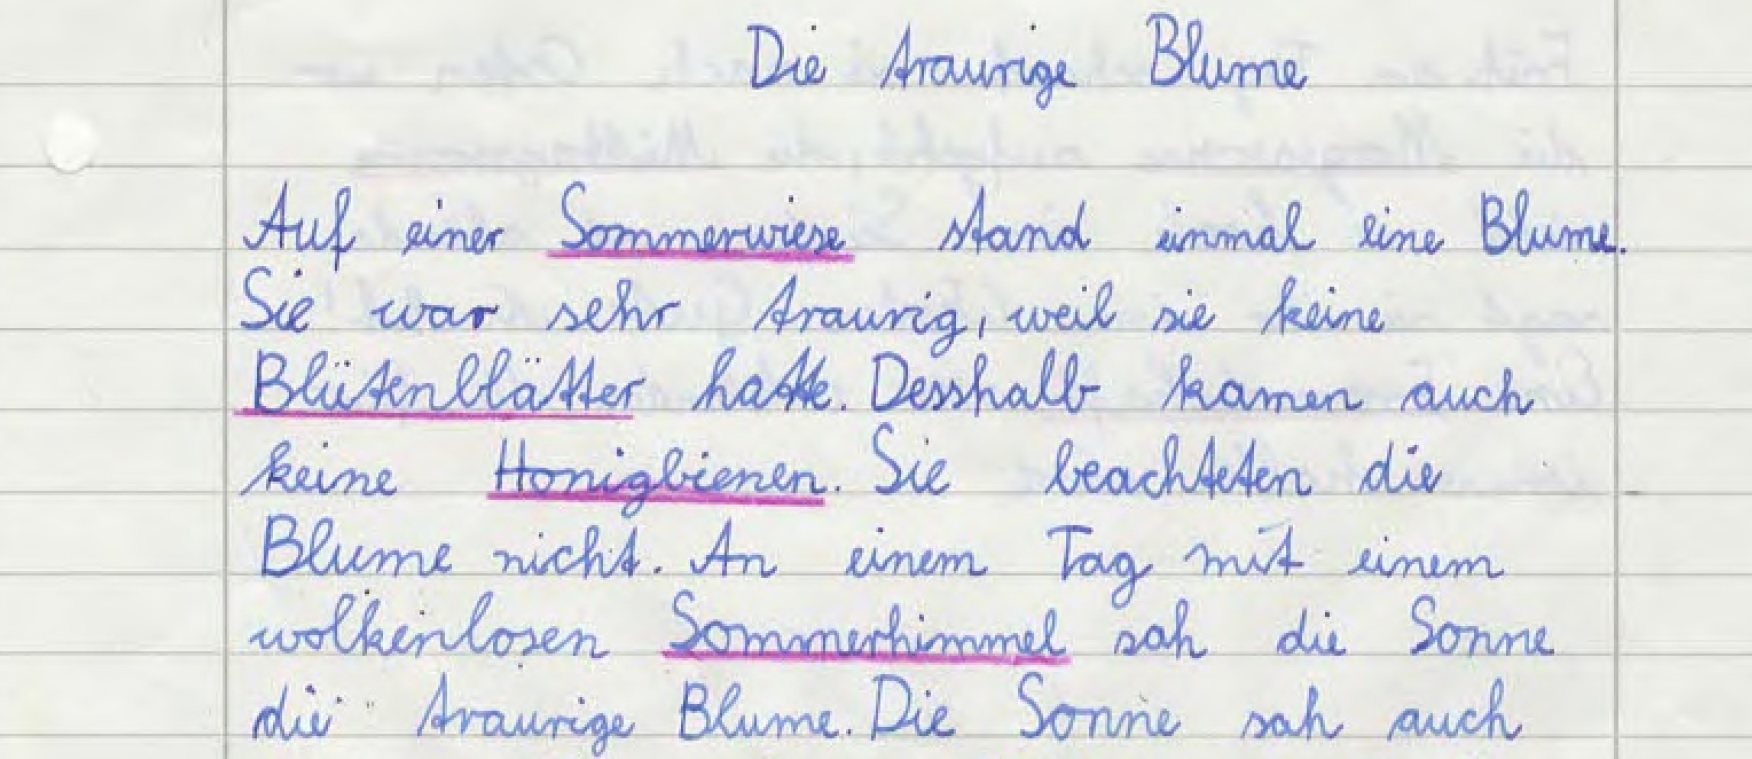 Die traurige Blume
Auf einer Sommerwiese stand einmal eine Blume.
Sie war sehr traurig, weil sie keine
Blütenblätter hatte. Desshalb kamen auch
keine Honigbienen. Sie beachteten die
Blume nicht. An einem Tag mit einem
wolkenlosen Sommerhimmel sah die Sonne
die traurige Blume. Die Sonne sah auch